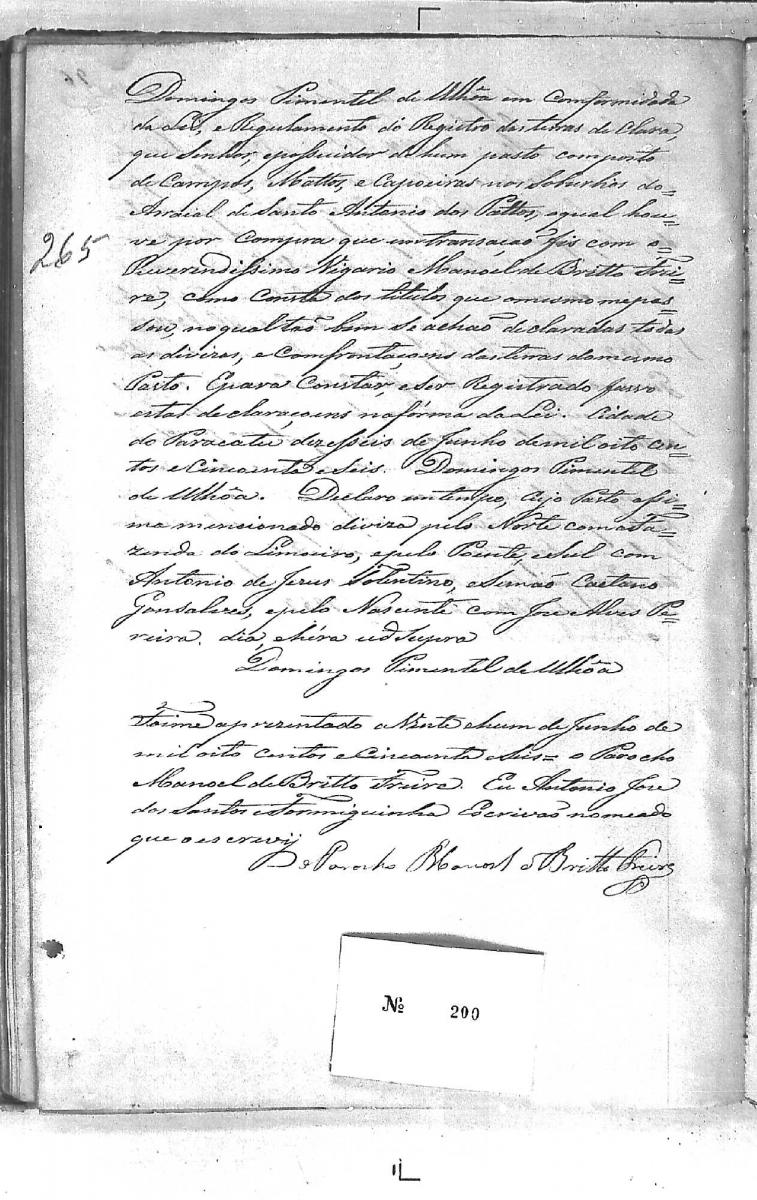 Domingos Pimentel de Ulhôa em Conformidade
da Lei, e Regulamento do Registro das terras de Clara
que Senhor, epossuidor de hum pasto composto
de Campos, Mattos, e Capoeiras nos Soburbios do=
Arraial de Santo Antonio dos Pattos, oqual hou=
265
ve por Compra que em transaçaõ fis com o=
Reverendissimo Vigario Manoel de Britto Frei=
re, como Consta dos titulos que omesmo mepas=
sou, noqual taõ bem se achaõ declaradas todas
as divizas, e Comfrontaçoens das terras domesmo
Pasto. Epara Constar, e ser Registrado fasso
estas declaraçoens nafórma da Lei. Cidade
do Paracatú dezesseis de Junho demil oito cen=
tos e Cincoenta e Seis. Domingos Pimentel
de Ulhôa. Declaro emtempo, cujo Pasto assi=
ma mensionado diviza pelo Norte com a Fa=
zenda do Limoeiro, epelo Poente, e Sul com
Antonio de Jesus Tolentino, e Simaõ Caetano
Gonsalves, epelo Nascente com Jose Alves Pe=
reira. dia, e hóra ud Supra
Domingos Pimentel de Ulhôa
Foime apresentado a Vinte ehum de Junho de
mil oito centos e Cincoenta e Seis= o Parocho
Manoel de Britto Freire. Eu Antonio Jose
dos Santos e Formiguinha Escrivaõ nomeado
que o escrevij
o Parocho Manoel de Britto Freire
No 200